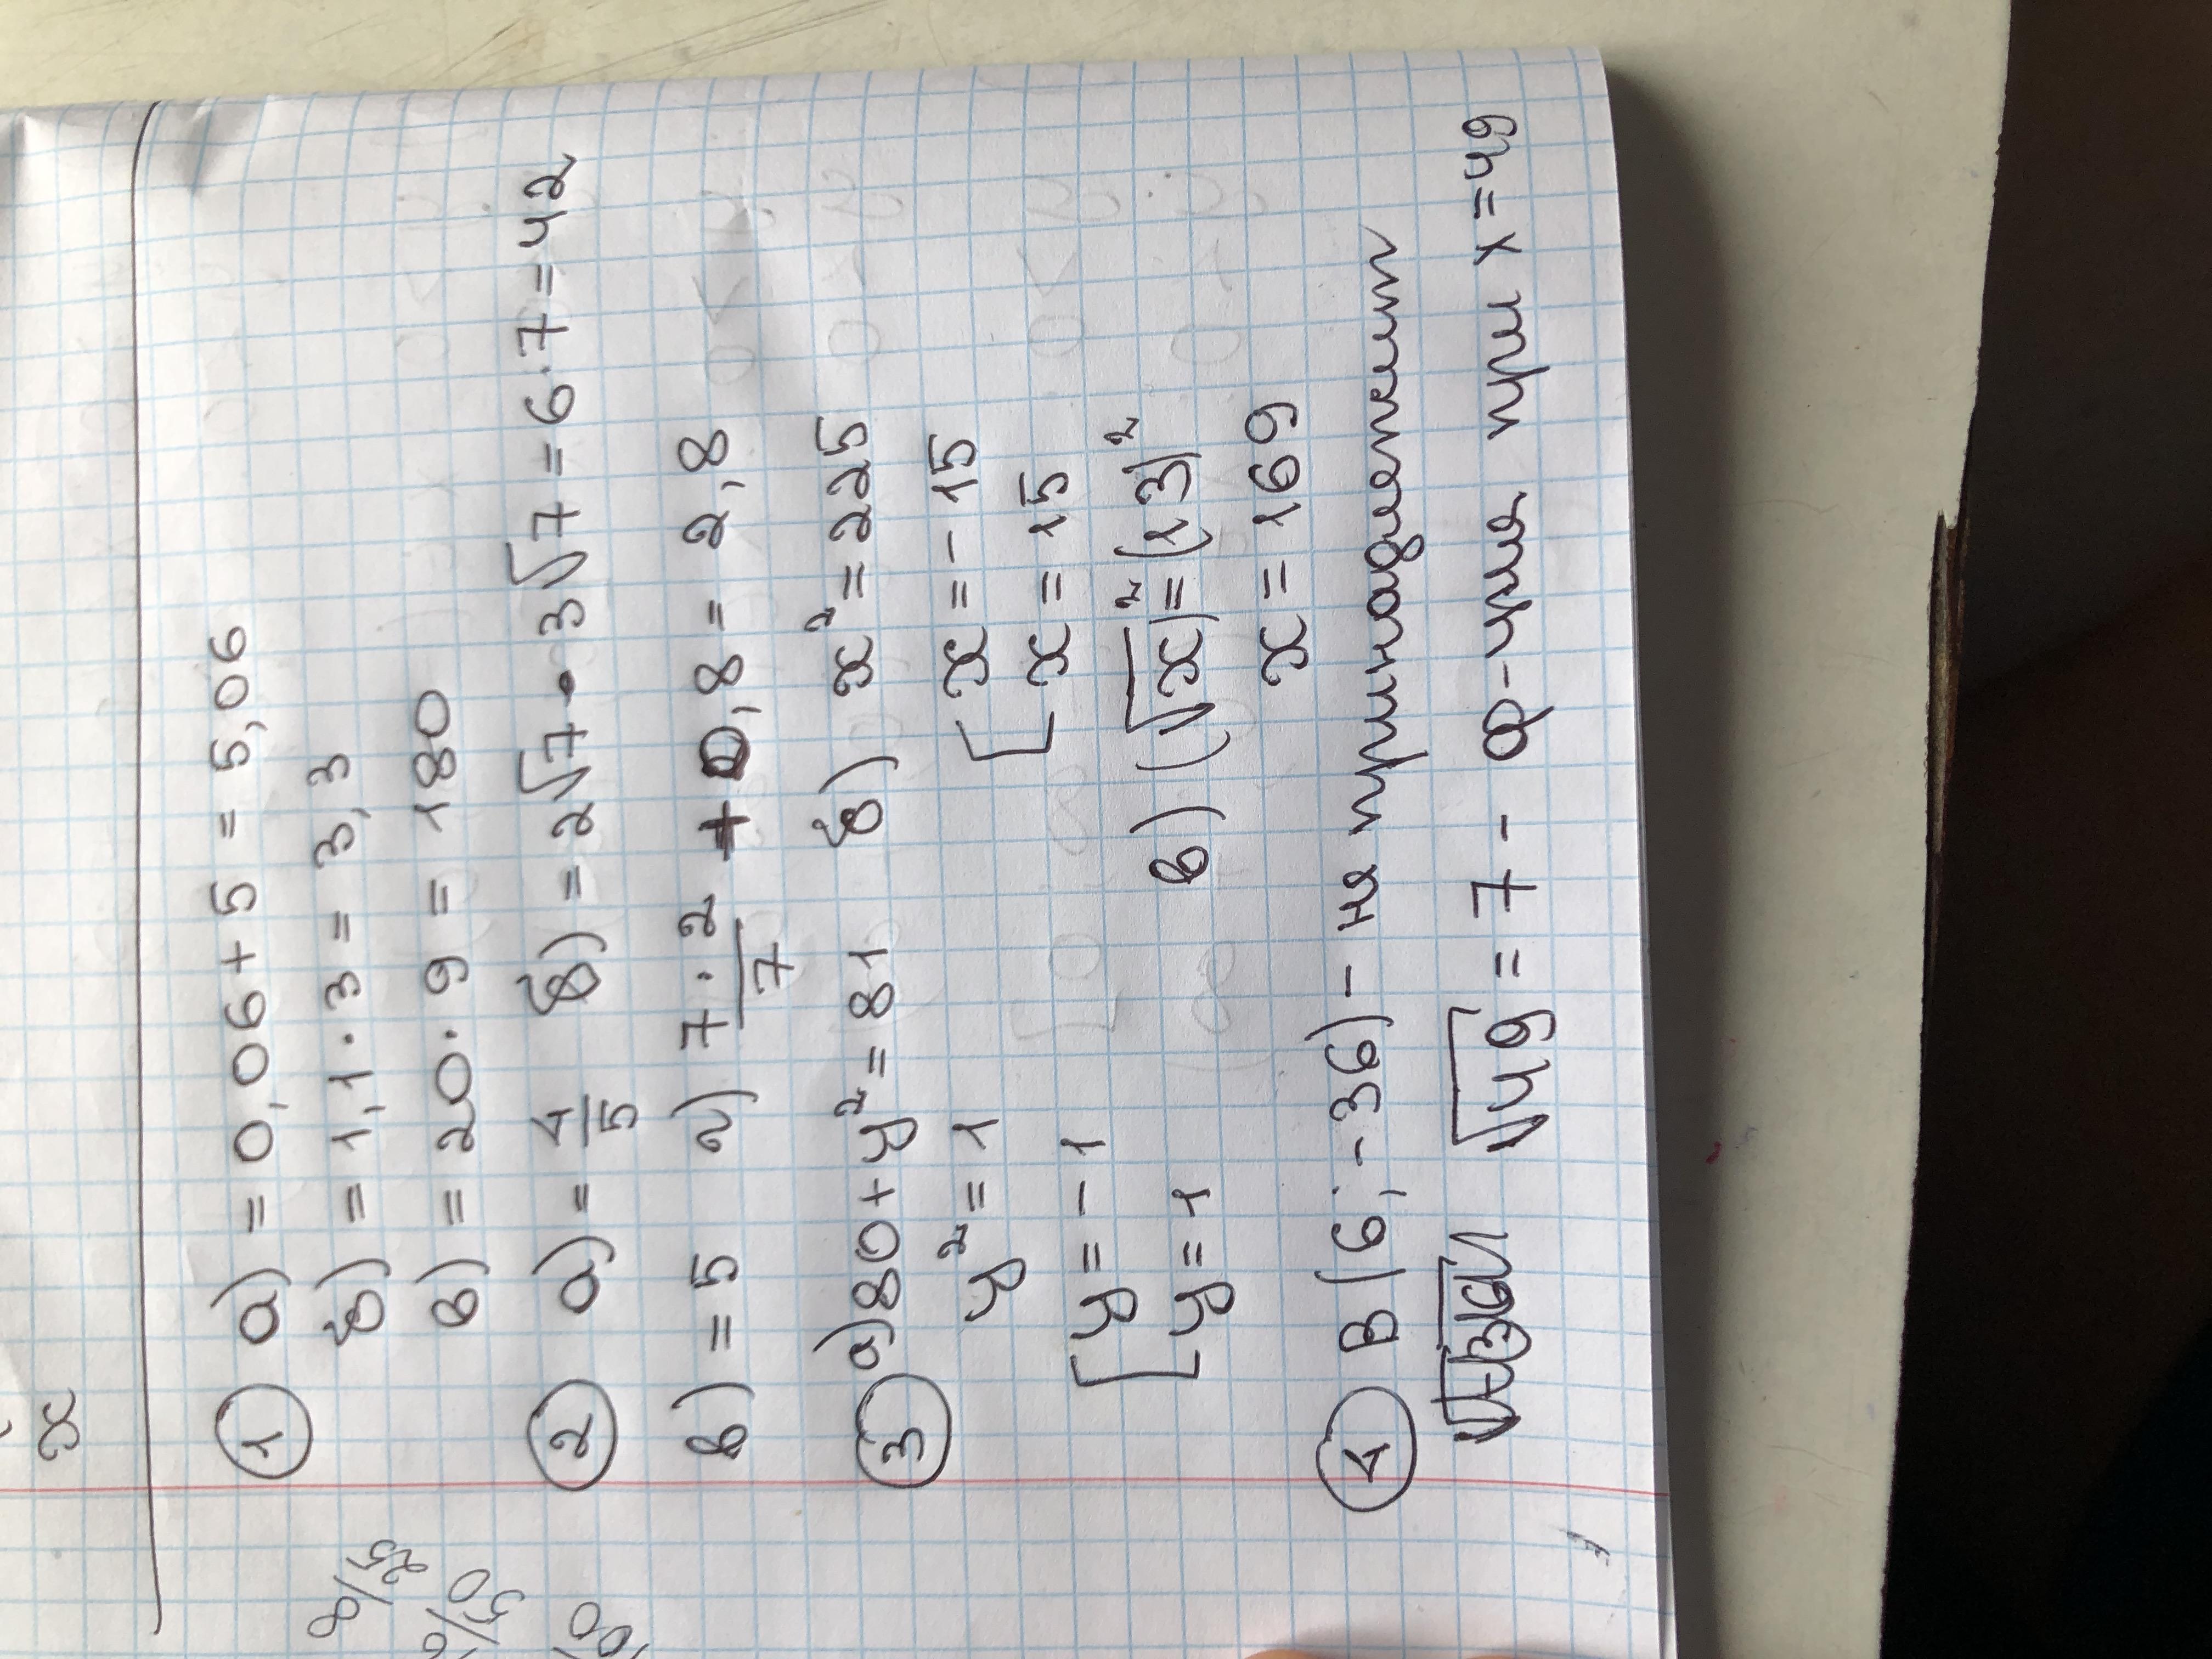 x
① а) = 0,06 + 5 = 5,06
б) = 1,1 · 3 = 3,3
в) = 20 · 9 = 180
② а) = 4/5 б) = 2√7 · 3√7 = 6 · 7 = 42
в) = 5 г) 7 · 2/7 + 0,8 = 2,8
③ а) 80 + y² = 81 б) x² = 225
y² = 1 [ x = -15
[ y = -1 x = 15
y = 1 в) (√x)² = (13)²
x = 169
④ В (6; -36) - не принадлежит
√49 = 7 - ф-ция при x = 49
8/25